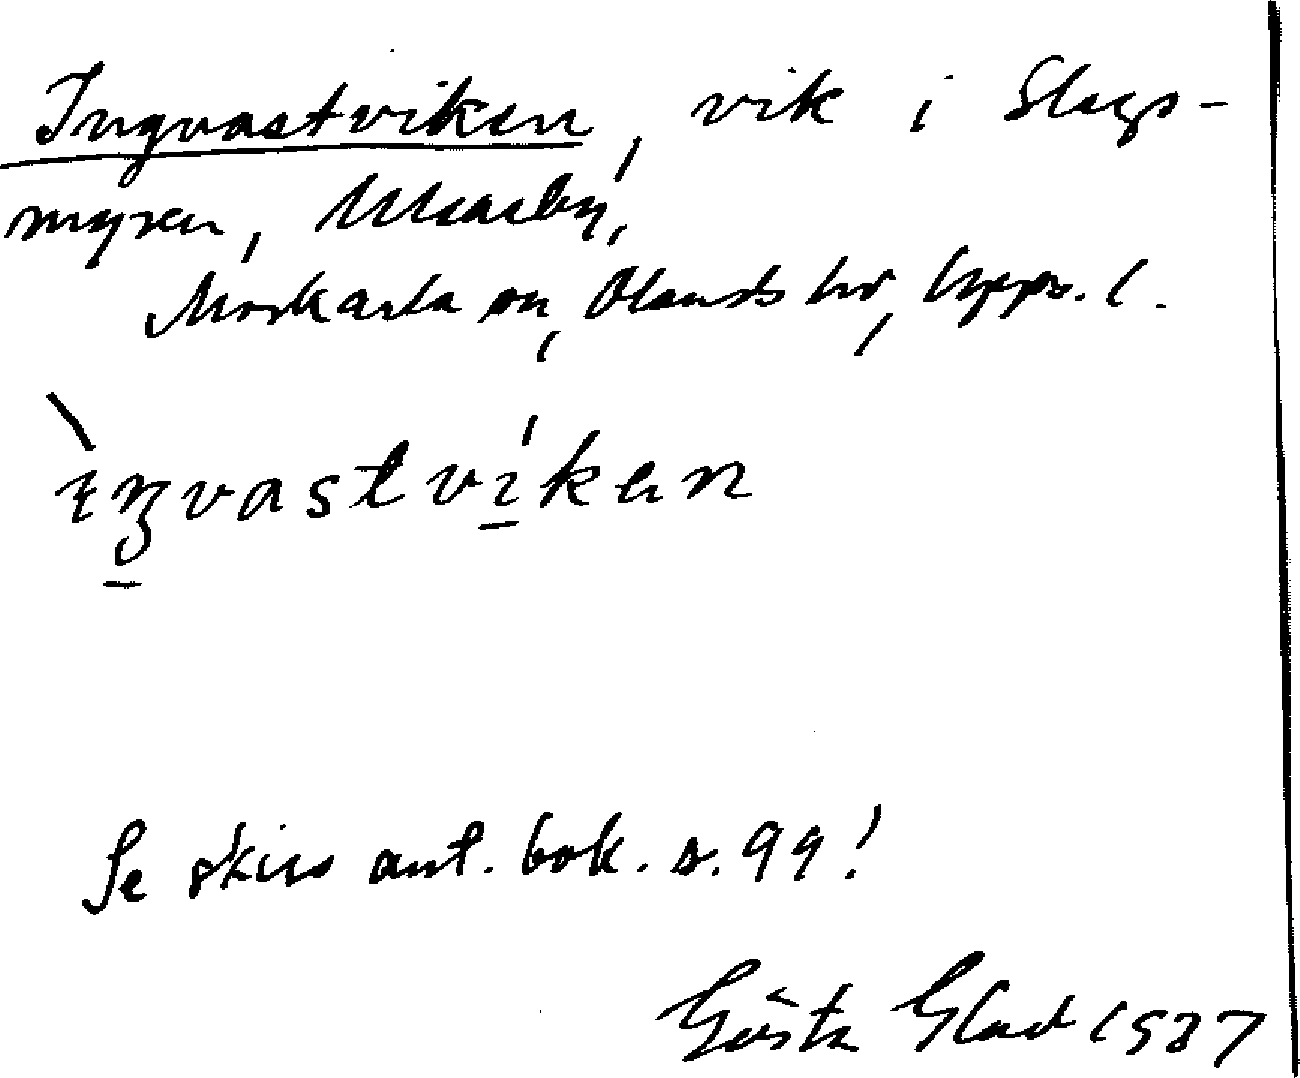 Ingvastviken, vik i Slags-
myren, Ulvarby,
Morkarla sn, Olands hd, Upps. l.
ıŋvastvikən
Se skiss ant. bok. s. 99!
Gösta Glad 1937